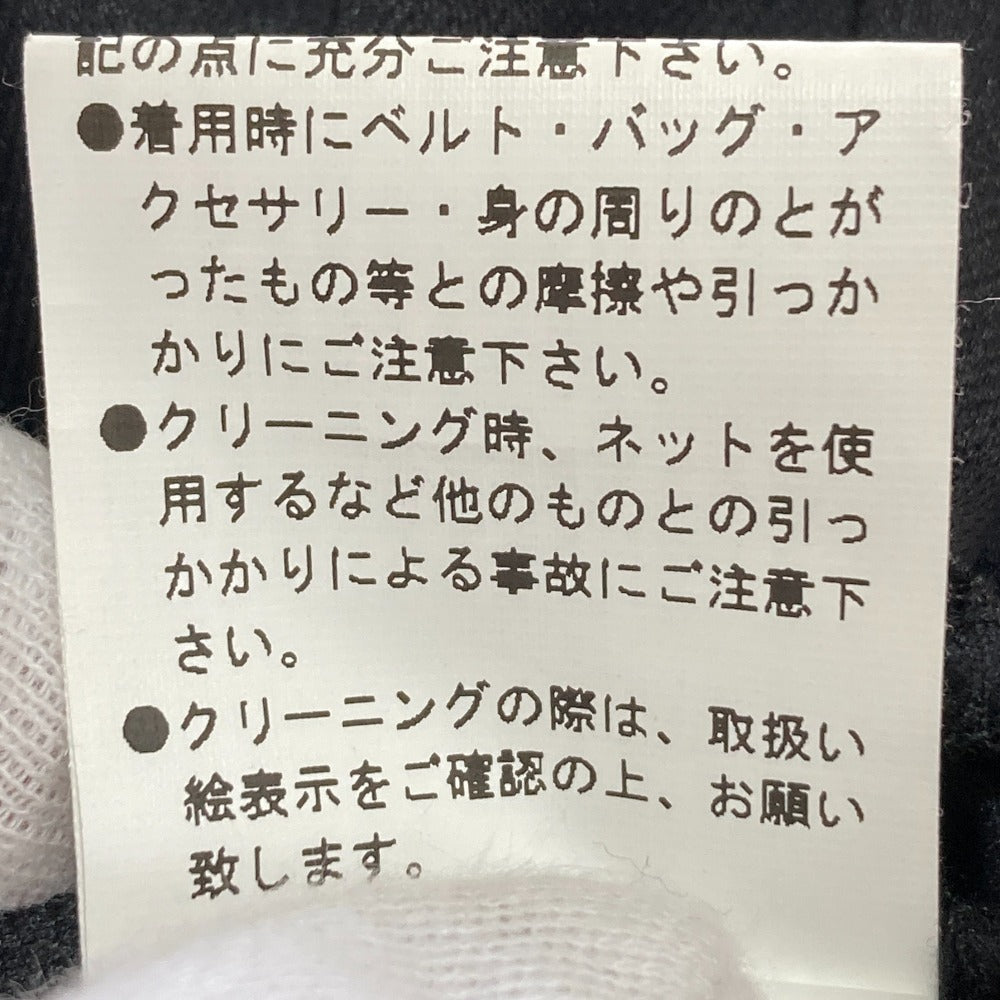 記の点に充分ご注意下さい。
●着用時にベルト・バッグ・ア
クセサリー・身の周りのとが
ったもの等との摩擦や引っか
かりにご注意下さい。
●クリーニング時、ネットを使
用するなど他のものとの引っ
かかりによる事故にご注意下
さい。
●クリーニングの際は、取扱い
絵表示をご確認の上、お願い
致します。